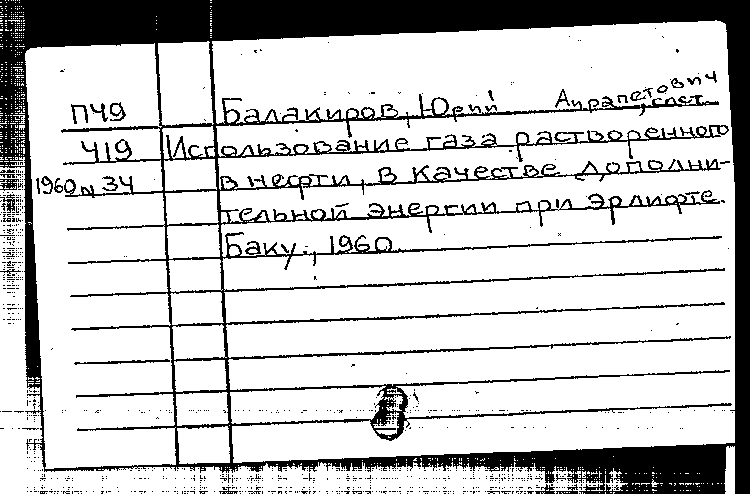 П49 Балакиров, Юрий Айрапетович, сост.
419 Использование газа растворенного
1960 N 34 в нефти, в качестве дополни-
тельной энергии при эрлифте.
Баку., 1960.